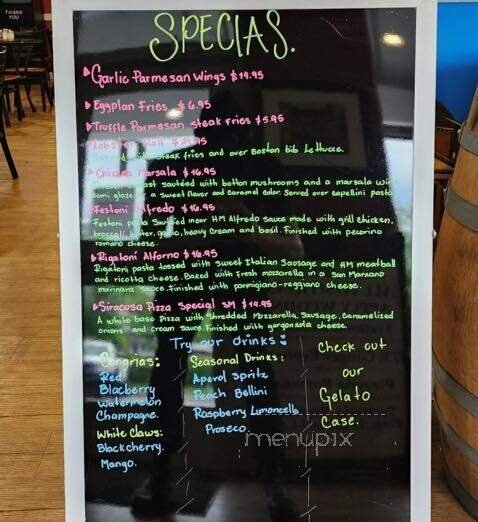 THANK YOU
SPECIAS.
Garlic Parmesan Wings $14.95
Eggplan Fries $6.95
Truffle Parmesan Steak Fries $5.95
Roll
steak fries and over Boston bib Lettuce.
Marsala $16.95
sautéed with botton mushrooms and a marsala
demi glaze a sweet flavor and caramel color. Served over capellini pasta
Festoni Alfredo $16.95
Festoni pasta sautéed HM Alfredo sauce made with grill chicken,
broccoli, butter, garlic, heavy cream and basil. Finished with pecorino
romano cheese.
Rigatoni Alforno $16.95
Rigatoni pasta tossed with sweet Italian Sausage and HM meatball
and ricotta cheese. Baked with fresh mozzarella in a San Marzano
marinara sauce. Finished with parmigiano-reggiano cheese.
Siracusa Pizza Special SM $14.95
A white base pizza with shredded Mozzarella, Sausage, Caramelized
onions and cream sauce. Finished with gorgonzola cheese.
Try our drinks:
Sangrias:
Red
Blacberry
Watermelon
Champagne.
White Claws:
Blackcherry.
Mango.
Seasonal Drinks:
Aperol Spritz
Peach Bellini
Raspberry Limoncello
Proseco.
Check out
our
Gelato
Case.
menupix